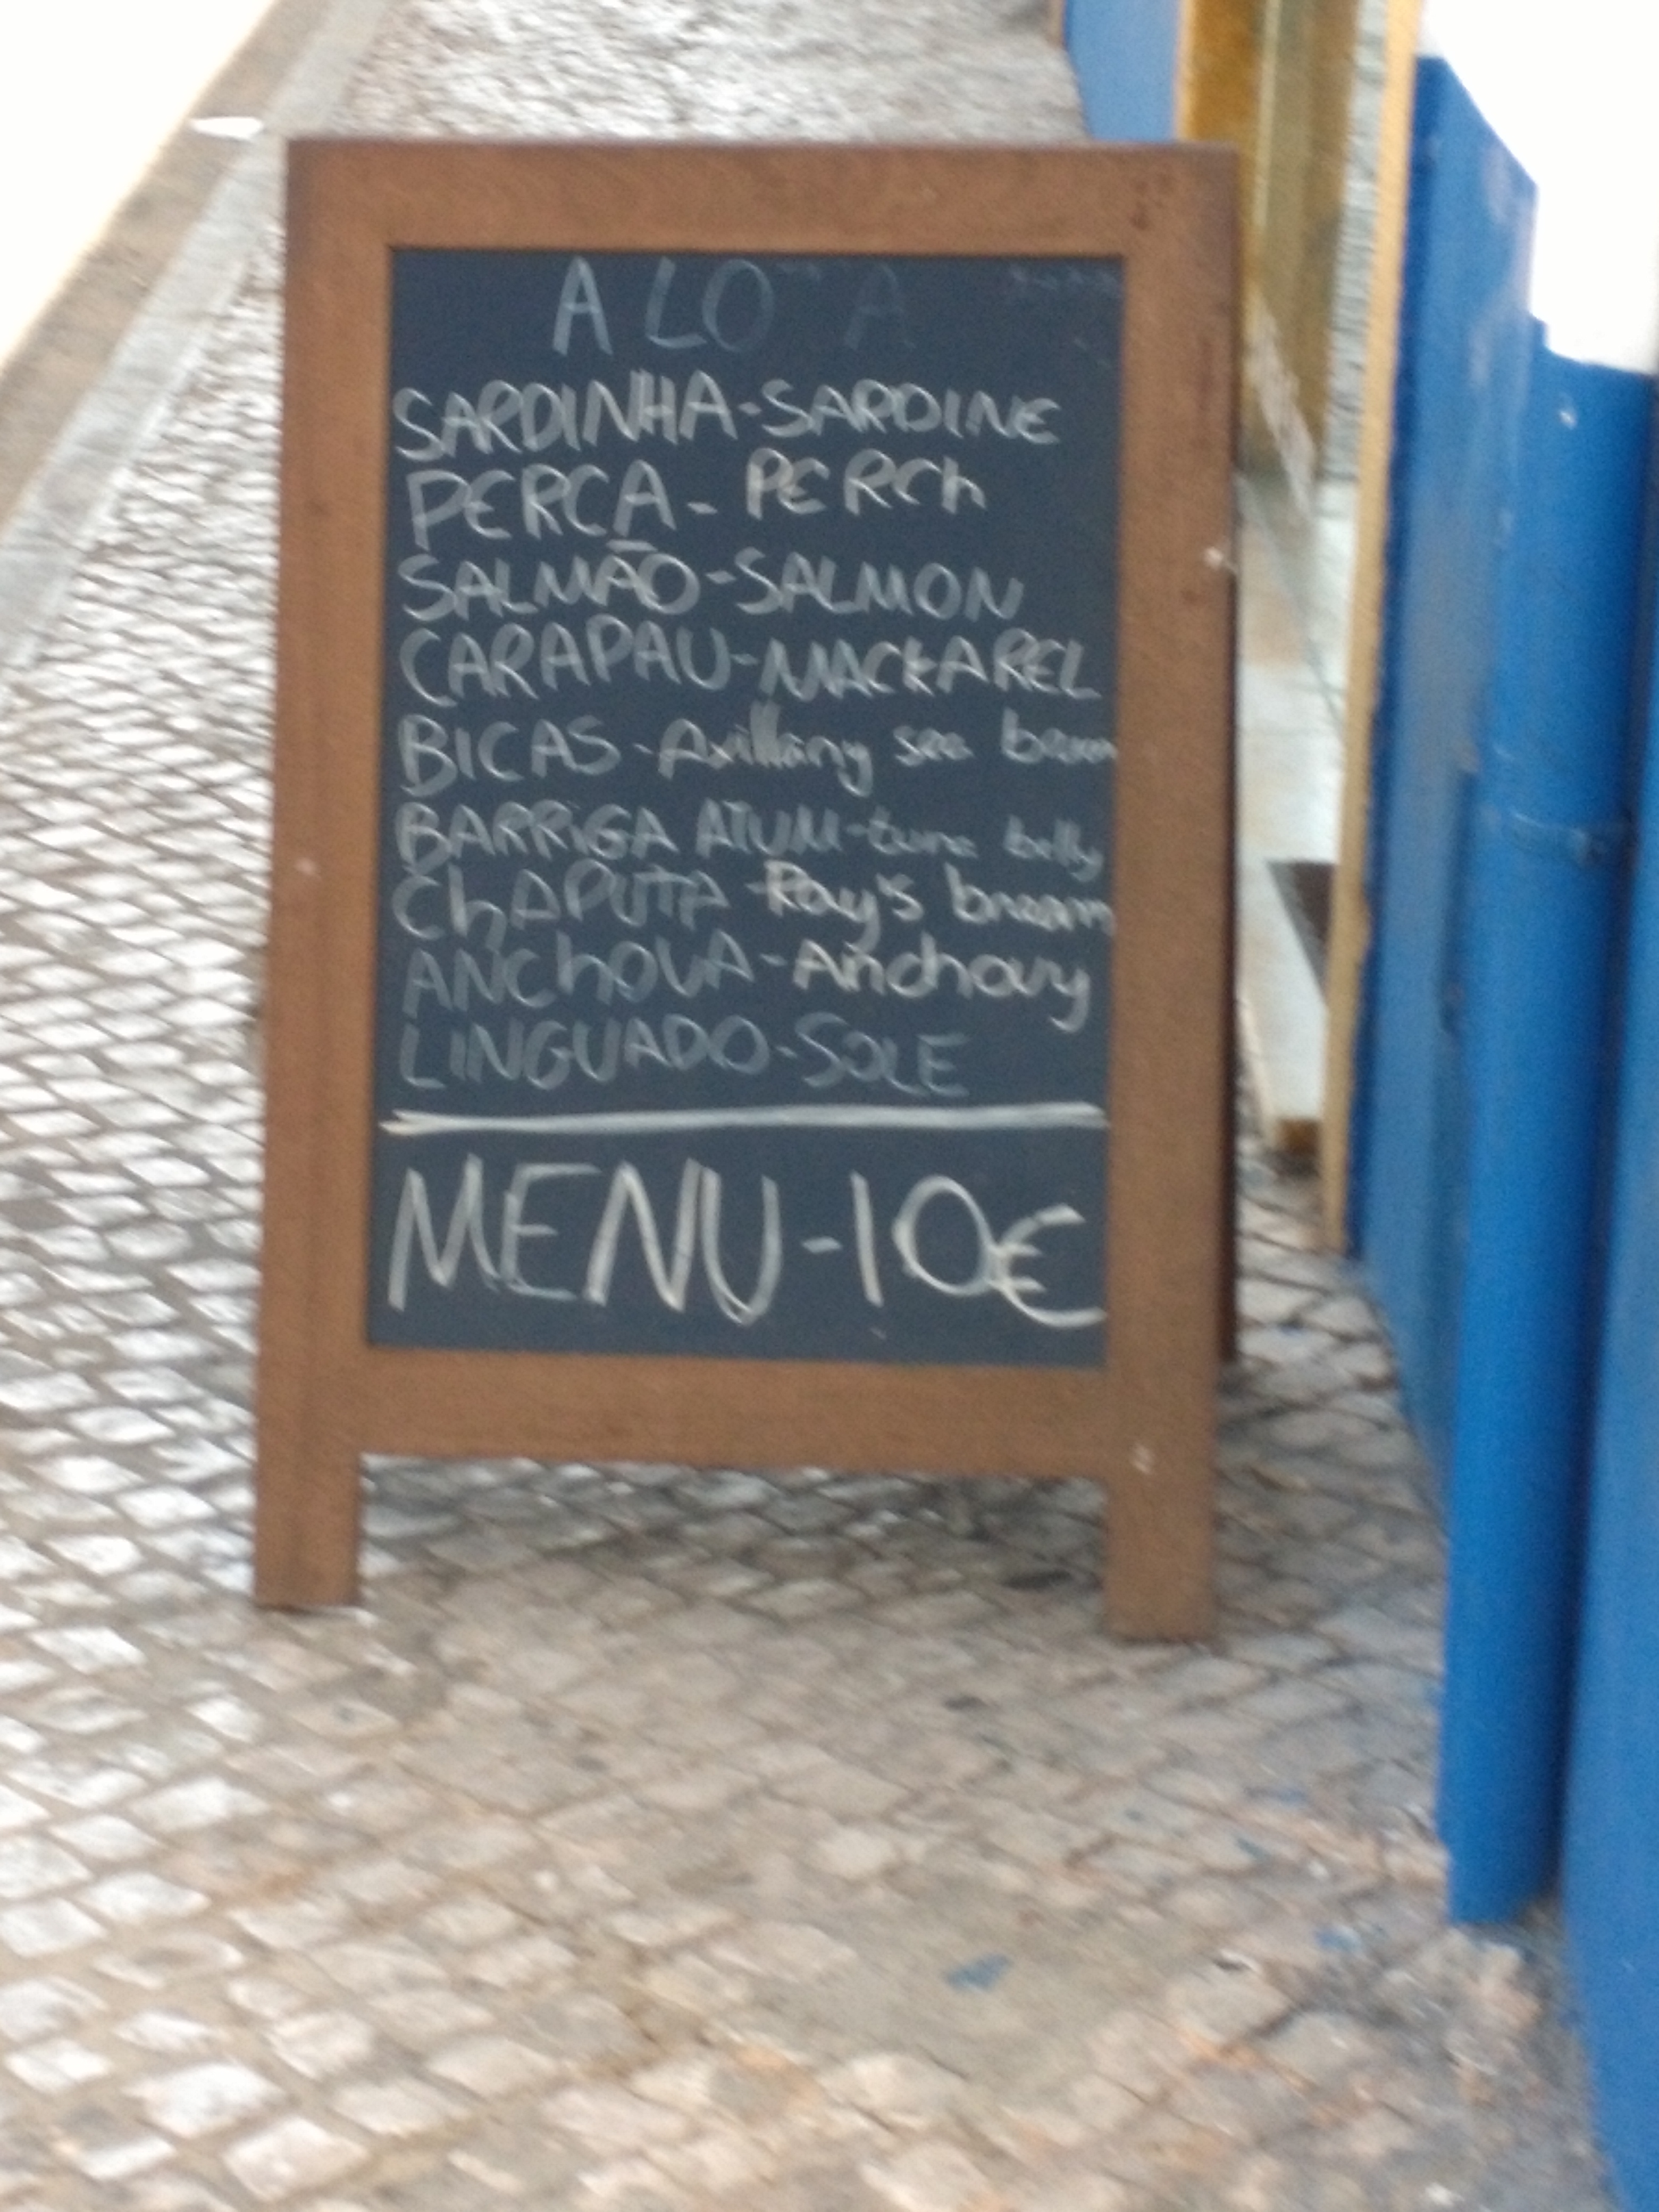 A LOTA
SARDINHA-SARDINE
PERCA - PERCh
SALMÃO-SALMON
CARAPAU-MACKAREL
BICAS-Axillary sea bream
BARRiGA ATUM-tuna belly
ChAPUTA-Ray's bream
ANChOVA-Anchovy
LINGUADO-SOLE
MENU-10€